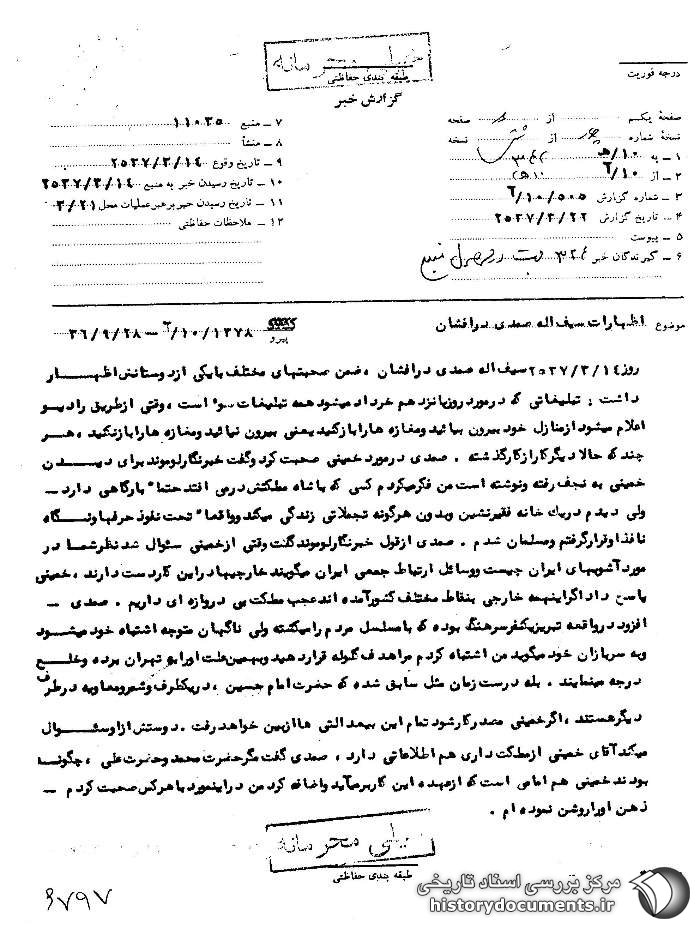 خیلی محرمانه
طبقه بندی حفاظتی
گزارش خبر
درجه فوریت
صفحهٔ یکم از صفحه
نسخهٔ شماره از نسخه
۱ ـ به ۳۴۱ / ۱۰ ه
۲ ـ از ۱۰ / ۶ ه
۳ ـ شماره گزارش ۵۰۵ / ۱۰ ه ۶
۴ ـ تاریخ گزارش ۲۵۳۷/۳/۲۲
۵ ـ پیوست
۶ ـ گیرندگان خبر
۷ ـ منبع ۱۱۰۳۵
۸ ـ منشأ
۹ ـ تاریخ وقوع ۲۵۳۷/۳/۱۴
۱۰ ـ تاریخ رسیدن خبر به منبع ۲۵۳۷/۳/۱۴
۱۱ ـ تاریخ رسیدن خبر برهبر عملیات محل ۳/۲۱
۱۲ ـ ملاحظات حفاظتی
موضوع اظهارات سیف اله صمدی درافشان
پیرو ۶/۱۰/۱۳۷۸ – ۳۶/۹/۲۸
روز ۲۵۳۷/۳/۱۴ سیف اله صمدی درافشان ، ضمن صحبتهای مختلف بایکی ازدوستانش اظهار
داشت : تبلیغاتی که درمورد روزپانزدهم خرداد میشود همه تبلیغات سوء است ، وقتی ازطریق رادیو
اعلام میشود ازمنازل خود بیرون بیائید ومغازه هارابازکنید یعنی بیرون نیائید ومغازه هارابازنکنید ، هر
چند که حالا دیگرکارازکارگذشته . صمدی درمورد خمینی صحبت کرد وگفت خبرنگارلوموند برای دیدن
خمینی به نجف رفته ونوشته است من فکرمیکردم کسی که باشاه مملکتش درمی افتد حتما" بارگاهی دارد –
ولی دیدم دریک خانه فقیرنشین وبدون هرگونه تجملاتی زندگی میکند وواقعا" تحت نفوذ حرفها ونگاه
نافذ اوقرارگرفتم ومسلمان شدم . صمدی ازقول خبرنگارلوموند گفت وقتی ازخمینی سئوال شد نظرشما در
مورد آشوبهای ایران چیست ووسائل ارتباط جمعی ایران میگویند خارجیها دراین کاردست دارند ، خمینی
پاسخ داد اگراینهمه خارجی بنقاط مختلف کشورآمده اند عجب مملکت بی دروازه ای داریم . صمدی –
افزود درواقعه تبریزیکنفرسرهنگ بوده که بامسلسل مردم رامیکشته ولی ناگهان متوجه اشتباه خود میشود
وبه سربازان خود میگوید من اشتباه کردم مراهدف گلوله قراردهید وبهمین علت اورابه تهران برده وخلع
درجه مینمایند . بله درست زمان مثل سابق شده که حضرت امام حسین ، دریکطرف وشمرومعاویه درطرف
دیگرهستند ، اگرخمینی مصدرکارشود تمام این بیعدالتی هاازبین خواهد رفت . دوستش ازاوسئوال
میکند آقای خمینی ازمملکت داری هم اطلاعاتی دارد ، صمدی گفت مگرحضرت محمد وحضرت علی ، چگونه
بودند خمینی هم امامی است که ازعهده این کاربرمیآید واضافه کرد من دراینمورد باهرکس صحبت کردم –
ذهن اوراروشن نموده ام .
خیلی محرمانه
طبقه بندی حفاظتی
۶۷۹۷
مرکز بررسی اسناد تاریخی
historydocuments.ir